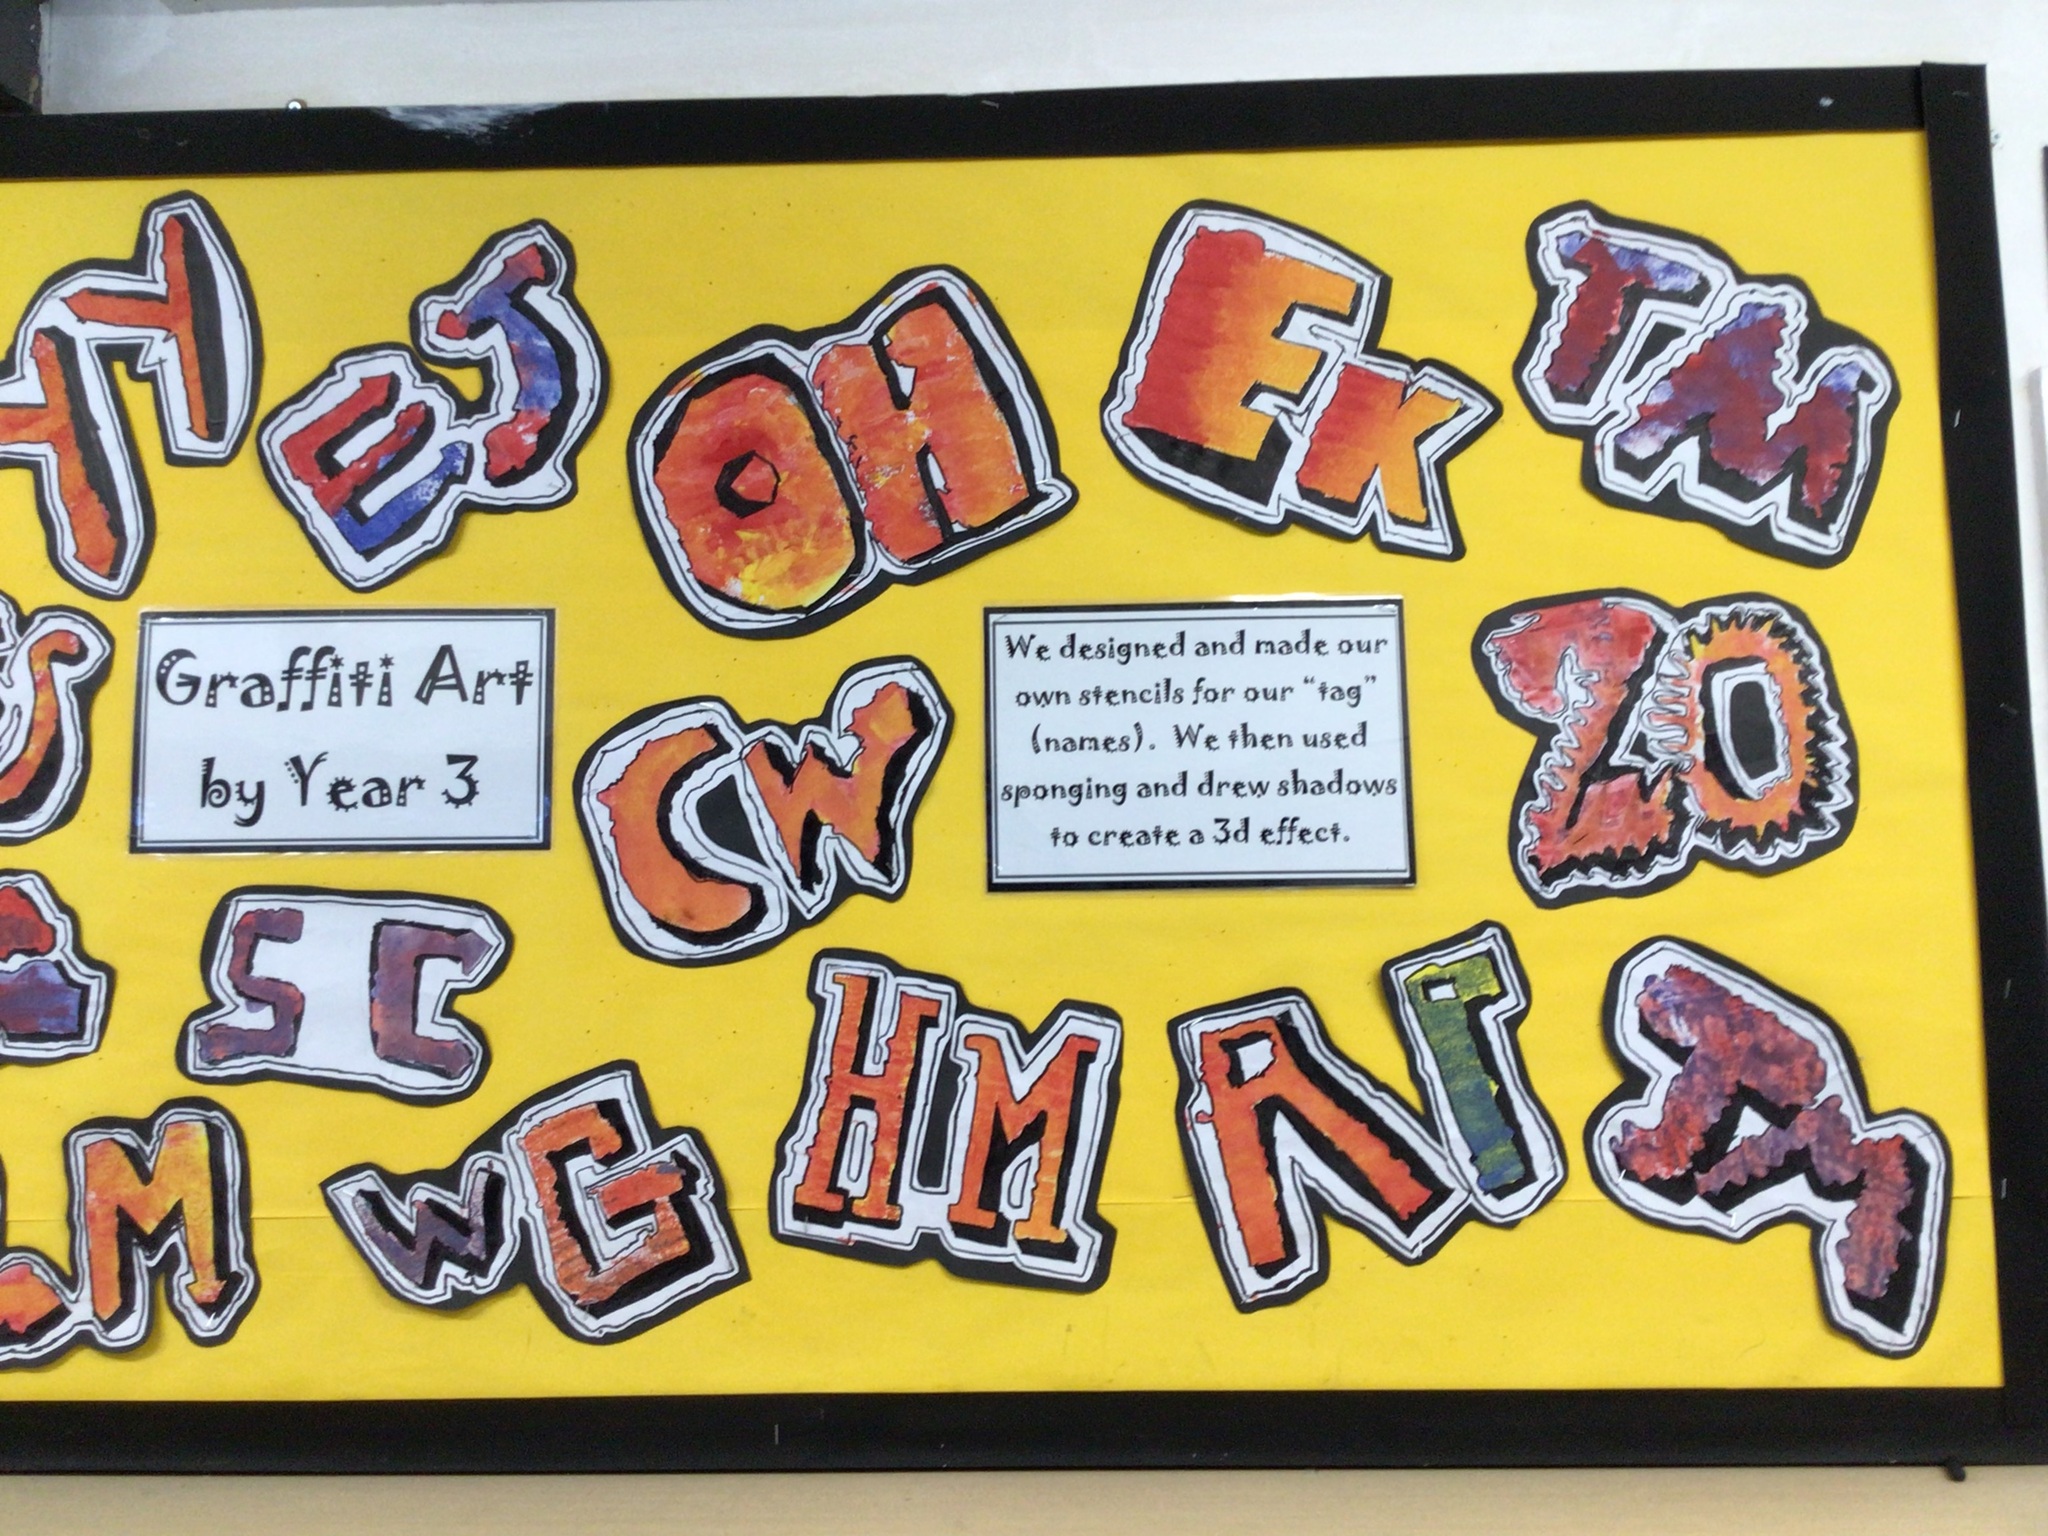 EJ
OH
EK
TM
Graffiti Art
by Year 3
We designed and made our
own stencils for our “tag”
(names). We then used
sponging and drew shadows
to create a 3d effect.
CW
ZO
SC
M
WG
HM